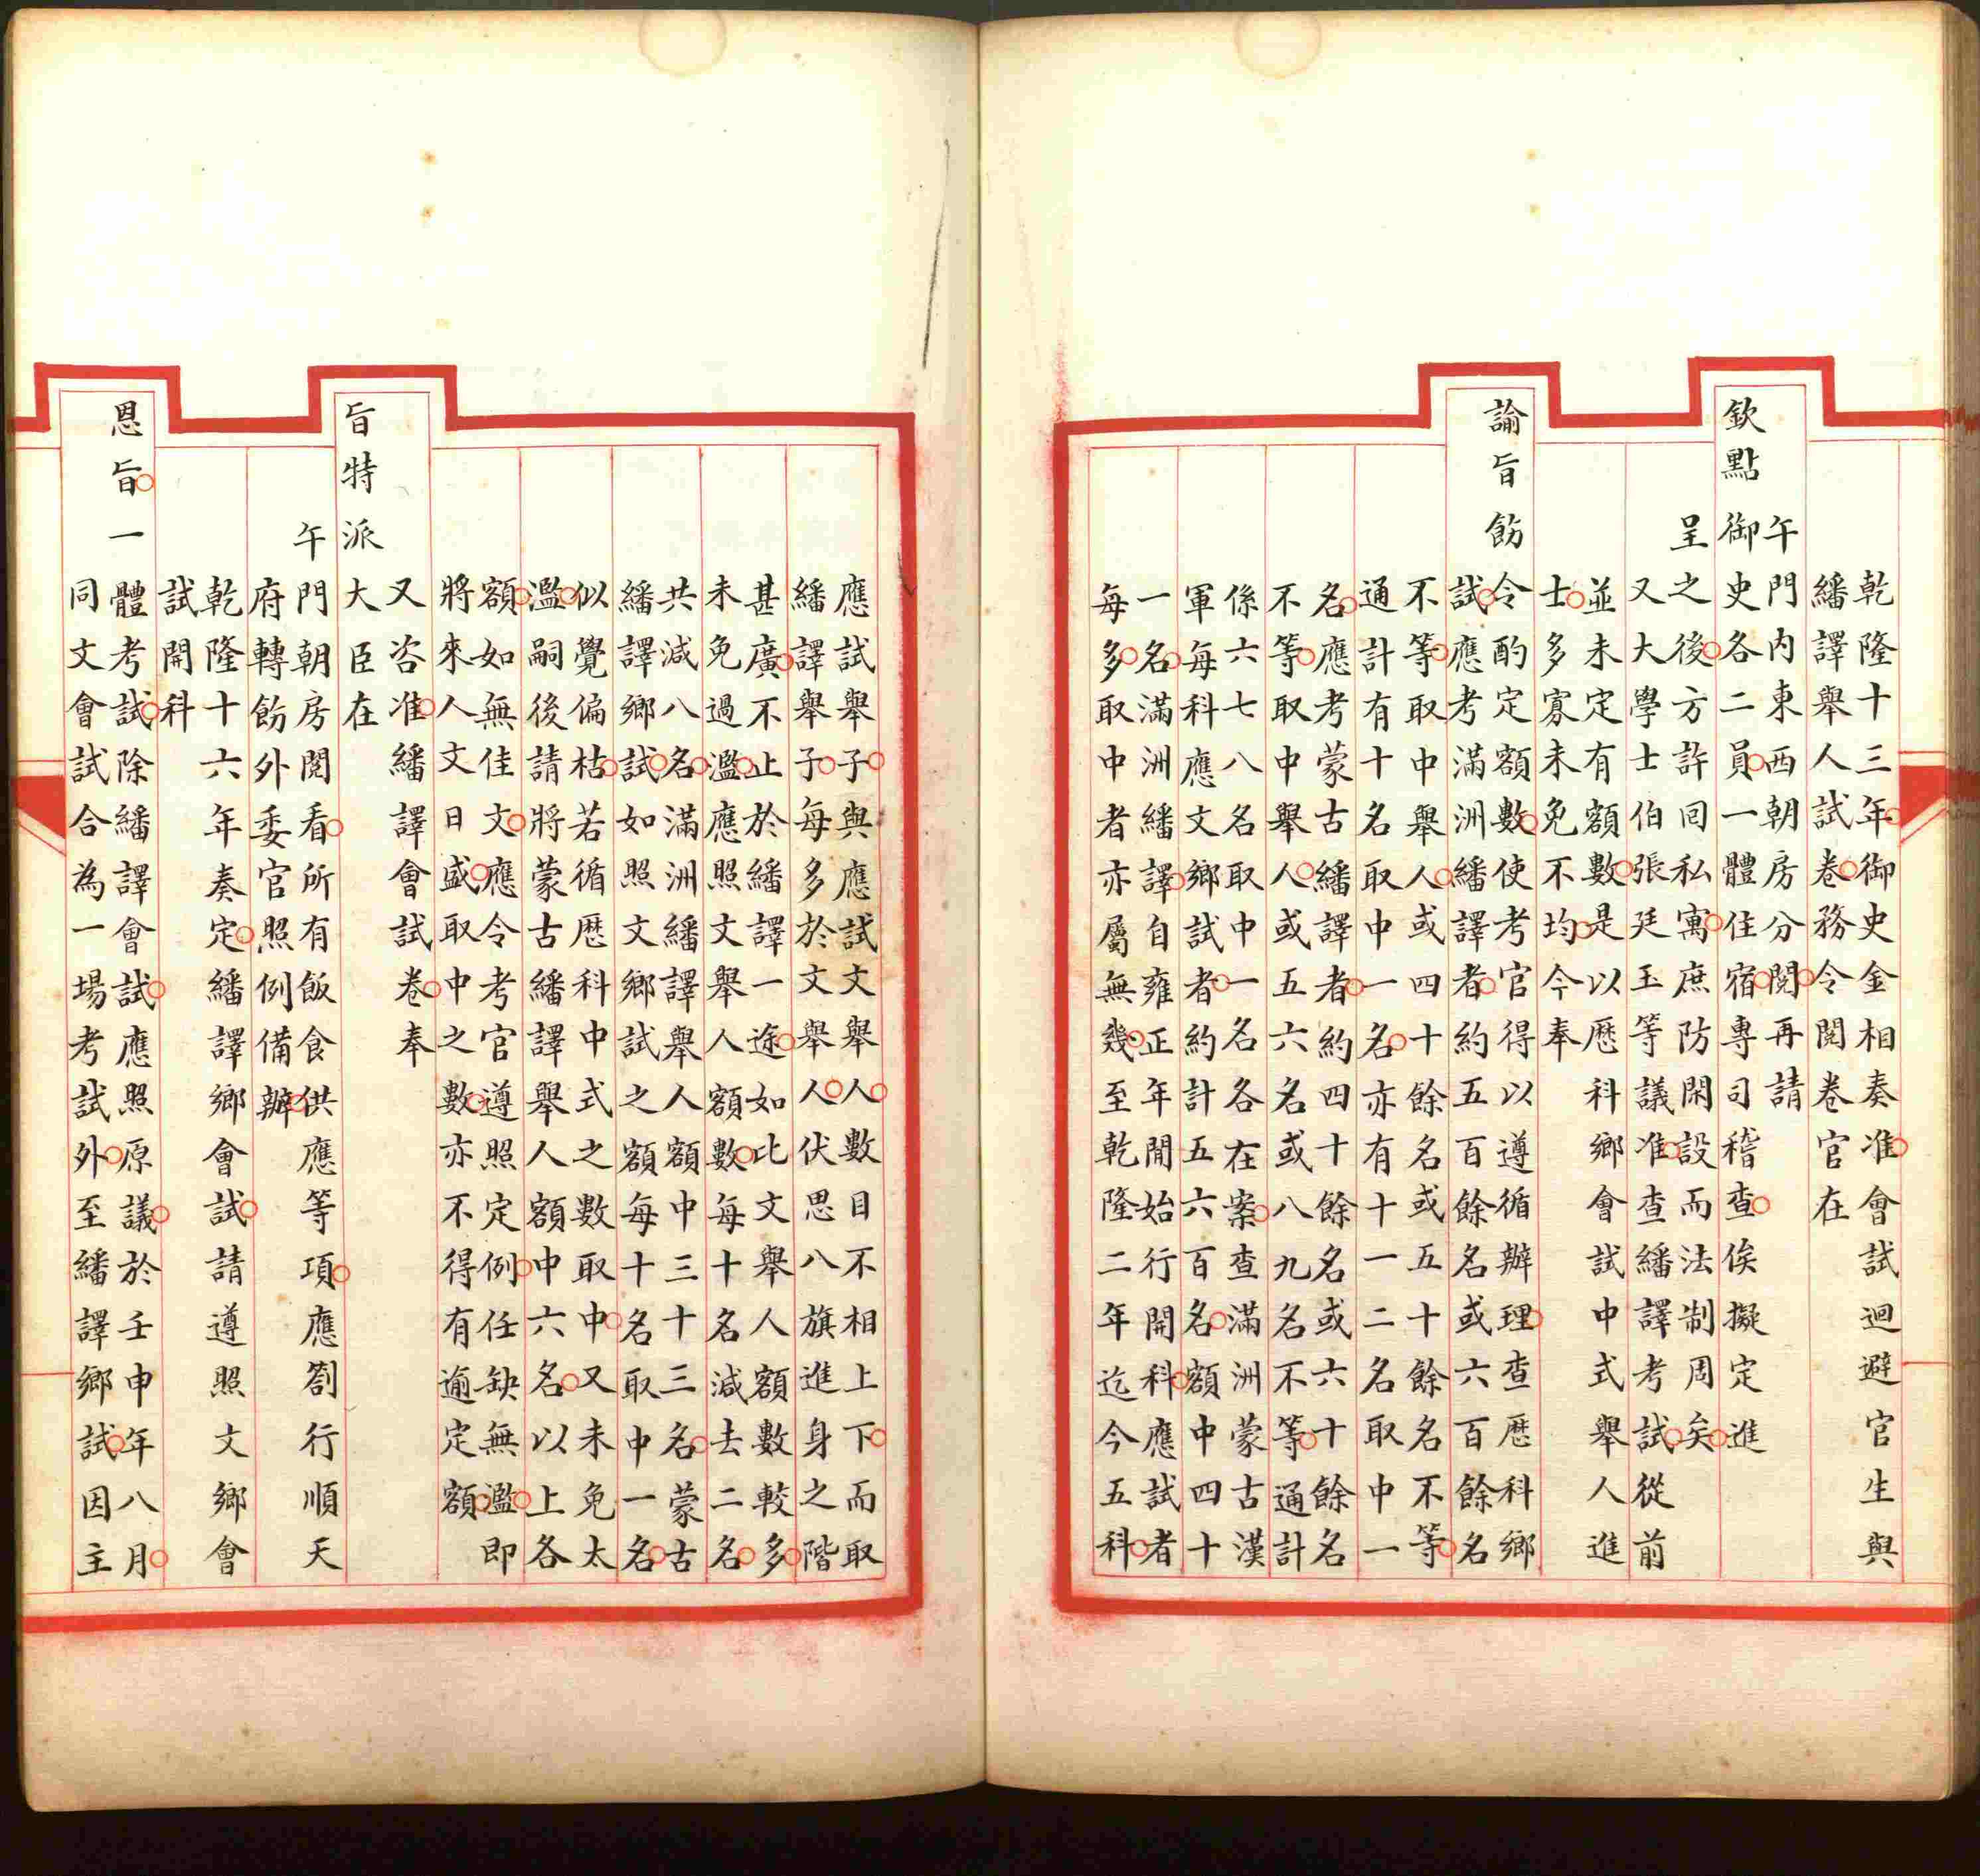 乾隆十三年御史金相奏准會試迴避官生與
繙譯舉人試卷務令閱卷官在
午門內東西朝房分閱再請
欽點御史各二員一體住宿專司稽查俟擬定進
呈之後方許回私寓庶防閑設而法制周矣
又大學士伯張廷玉等議准查繙譯考試從前
並未定有額數是以歷科鄉會試中式舉人進
士多寡未免不均今奉
諭旨飭令酌定額數使考官得以遵循辦理查歷科鄉
試應考滿洲繙譯者約五百餘名或六百餘名
不等取中舉人或四十餘名或五十餘名不等
通計有十名取中一名亦有十一二名取中一
名應考蒙古繙譯者約四十餘名或六十餘名
不等取中舉人或五六名或八九名不等通計
係六七八名取中一名各在案查滿洲蒙古漢
軍每科應文鄉試者約計五六百名額中四十
一名滿洲繙譯自雍正年間始行開科應試者
每多取中者亦屬無幾至乾隆二年迄今五科
應試舉子與應試文舉人數目不相上下而取
繙譯舉子每多於文舉人伏思八旗進身之階
甚廣不止於繙譯一途如比文舉人額數較多
未免過濫應照文舉人額數每十名減去二名
共減八名滿洲繙譯舉人額中三十三名蒙古
繙譯鄉試如照文鄉試之額每十名取中一名
似覺偏枯若循歷科中式之數取中又未免太
濫嗣後請將蒙古繙譯舉人額中六名以上各
額如無佳文應令考官遵照定例任缺無濫即
將來人文日盛取中之數亦不得有逾定額
又咨准繙譯會試卷奉
旨特派大臣在
午門朝房閱看所有飯食供應等項應劄行順天
府轉飭外委官照例備辦
乾隆十六年奏定繙譯鄉會試請遵照文鄉會
試開科
恩旨一體考試除繙譯會試應照原議於壬申年八月
同文會試合為一場考試外至繙譯鄉試因主